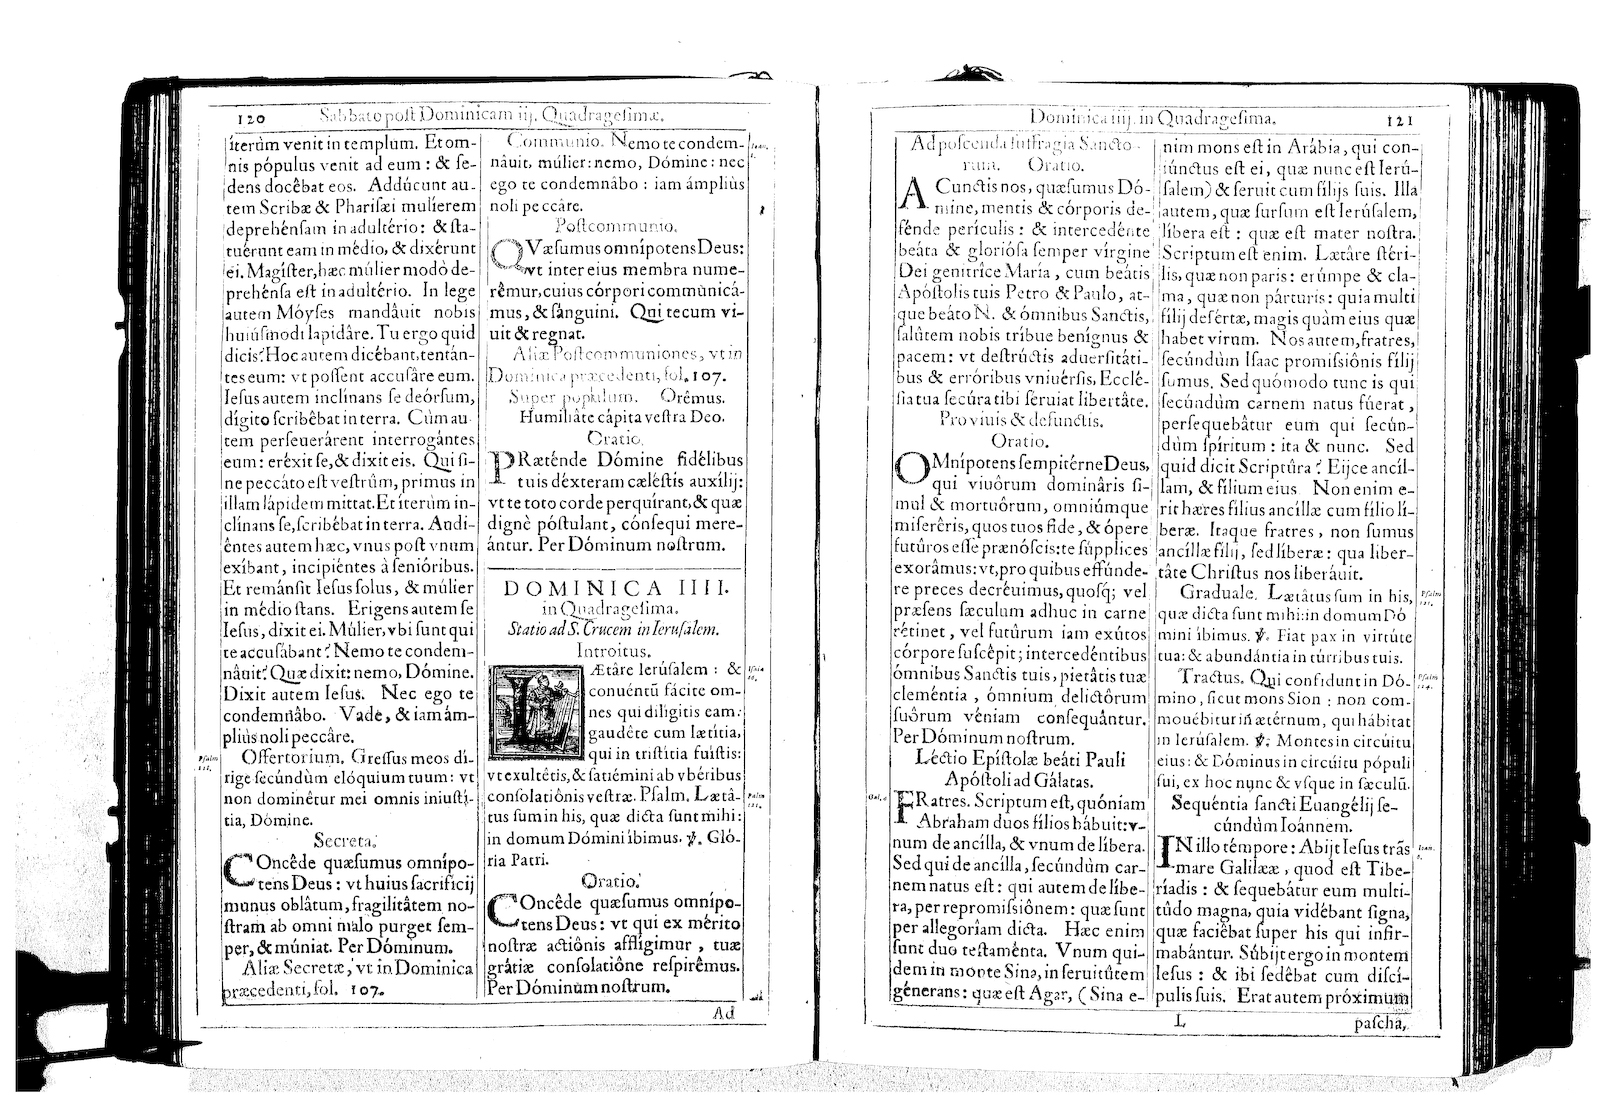 120 Sabbato post Dominicam iij. Quadragesimæ.
íterùm venit in templum. Et om-
nis pópulus venit ad eum : & se-
dens docêbat eos. Addúcunt au-
tem Scribæ & Pharisæi mulíerem
deprehénsam in adultério: & sta-
tuérunt eam in médio, & dixérunt
ei. Magíster, hæc múlier modò de-
prehénsa est in adultério. In lege
autem Móyses mandâuit nobis
huiúsmodi lapidâre. Tu ergo quid
dicis? Hoc autem dicébant, tentán-
tes eum: vt possent accusâre eum.
Iesus autem inclînans se deórsum,
dígito scribêbat in terra. Cùm au-
tem perseuerárent interrogántes
eum: eréxit se, & dixit eis. Qui si-
ne peccáto est vestrûm, primus in
illam lápidem mittat. Et íterùm in-
clínans se, scribêbat in terra. Audi-
êntes autem hæc, vnus post vnum
exíbant, incipiéntes à senióribus.
Et remánsit Iesus solus, & múlier
in médio stans. Erigens autem se
Iesus, dixit ei. Múlier, vbi sunt qui
te accusábant? Nemo te condem-
nâuit? Quæ dixit: nemo, Dómine.
Dixit autem Iesus. Nec ego te
condemnâbo. Vade, & iam ám-
pliùs noli peccâre.
Offertorium. Gressus meos dí-
rige secúndùm elóquium tuum: vt
non dominêtur mei omnis iniustí-
tia, Dómine.
Psalm
Secreta.
COncêde quæsumus omnípo-
tens Deus : vt huius sacrificij
munus oblâtum, fragilitâtem no-
stram ab omni malo purget sem-
per, & múniat. Per Dóminum.
Aliæ Secretæ, vt in Dominica
præcedenti, fol. 107.
Communio. Nemo te condem-
nâuit, múlier: nemo, Dómine: nec
ego te condemnâbo : iam ámpliùs
noli peccâre.
Ioan.
Postcommunio.
QVæsumus omnípotens Deus:
vt inter eius membra nume-
rêmur, cuius córpori commùnicá-
mus, & sánguini. Qui tecum ví-
uit & regnat.
Aliæ Postcommuniones, vt in
Dominica præcedenti, fol. 107.
Super populum. Orêmus.
Humiliâte cápita vestra Deo.
Oratio.
PRæténde Dómine fidélibus
tuis déxteram cæléstis auxílij:
vt te toto corde perquírant, & quæ
dignè póstulant, cónsequi mere-
ántur. Per Dóminum nostrum.
DOMINICA IIII.
in Quadragesima.
Statio ad S. Crucem in Ierusalem.
Introitus.
LÆtâre Ierúsalem : &
conuéntũ fácite om-
nes qui diligitis eam:
gaudéte cum lætítia,
qui in tristítia fuístis:
vt exultétis, & satiémini ab vbéribus
consolatiônis vestræ. Psalm. Lætâ-
tus sum in his, quæ dicta sunt mihi:
in domum Dómini íbimus. ℣. Gló-
ria Patri.
Psalm
Oratio.
COncêde quæsumus omnípo-
tens Deus: vt qui ex mérito
nostræ actiônis afflígimur , tuæ
grátiæ consolatiône respirêmus.
Per Dóminum nostrum.
Ad
Dominica iiij. in Quadragesima. 121
Ad poscenda suffragia Sancto-
rum. Oratio.
A Cunctis nos, quæsumus Dó-
mine, mentis & córporis de-
fénde perículis : & intercedénte
beáta & gloriósa semper vírgine
Dei genitríce María , cum beátis
Apóstolis tuis Petro & Paulo, at-
que beáto N. & ómnibus Sanctis,
salûtem nobis tríbue benígnus &
pacem: vt destrúctis aduersitáti-
bus & erróribus vniuérsis, Ecclé-
sia tua secúra tibi séruiat libertâte.
Pro viuis & defunctis.
Oratio.
OMnípotens sempitérne Deus,
qui viuôrum domináris si-
mul & mortuôrum, omniúmque
miserêris, quos tuos fide, & ópere
futûros esse prænóscis: te súpplices
exorâmus: vt, pro quibus effúnde-
re preces decréuimus, quosq; vel
præsens sæculum adhuc in carne
rétinet, vel futûrum iam exútos
córpore suscêpit; intercedéntibus
ómnibus Sanctis tuis, pietâtis tuæ
cleméntia , ómnium delictôrum
suôrum véniam consequântur.
Per Dóminum nostrum.
Léctio Epístolæ beáti Pauli
Apóstoli ad Gálatas.
Gal. 4
FRatres. Scriptum est, quóniam
Abraham duos fílios hábuit: v-
num de ancílla, & vnum de líbera.
Sed qui de ancílla, secúndùm car-
nem natus est: qui autem de líbe-
ra, per repromissiônem: quæ sunt
per allegoríam dicta. Hæc enim
sunt duo testaménta. Vnum qui-
dem in monte Sina, in seruitûtem
génerans: quæ est Agar, (Sina e-
nim mons est in Arábia, qui con-
iúnctus est ei, quæ nunc est Ierú-
salem) & seruit cum fílijs suis. Illa
autem, quæ sursum est Ierúsalem,
líbera est : quæ est mater nostra.
Scriptum est enim. Lætâre stéri-
lis, quæ non paris: erúmpe & cla-
ma, quæ non párturis: quia multi
fílij desértæ, magis quàm eius quæ
habet virum. Nos autem, fratres,
secúndùm Isaac promissiônis fílij
sumus. Sed quómodo tunc is qui
secúndùm carnem natus fúerat ,
persequebâtur eum qui secún-
dùm spíritum : ita & nunc. Sed
quid dicit Scriptûra? Eijce ancíl-
lam, & fílium eius Non enim e-
rit hæres fílius ancíllæ cum fílio lí-
beræ. Itaque fratres , non sumus
ancíllæ fílij, sed líberæ: qua liber-
tâte Christus nos liberáuit.
Graduale. Lætâtus sum in his,
quæ dicta sunt mihi: in domum Dó
mini íbimus. ℣. Fiat pax in virtúte
tua: & abundántia in túrribus tuis.
Psalm
Tractus. Qui confidunt in Dó-
mino, sicut mons Sion : non com-
mouébitur in ætérnum, qui hábitat
in Ierúsalem. ℣. Montes in circúitu
eius: & Dóminus in circúitu pópuli
sui, ex hoc nunc & vsque in sæculũ.
Psalm
Sequéntia sancti Euangélij se-
cúndùm Ioánnem.
IN illo témpore: Abijt Iesus trãs
mare Galilææ , quod est Tibe-
ríadis : & sequebâtur eum multi-
tûdo magna, quia vidébant signa,
quæ faciêbat super his qui infir-
mabántur. Súbijt ergo in montem
Iesus : & ibi sedêbat cum discí-
pulis suis. Erat autem próximum
Ioan.
L pascha,